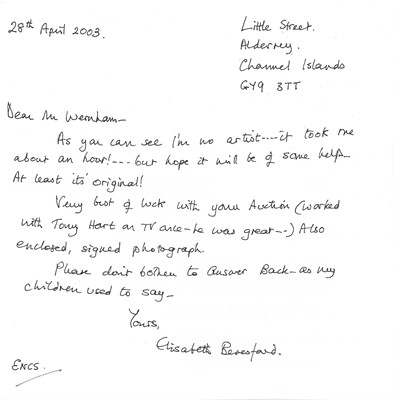 28th April 2003.
Little Street.
Alderney.
Channel Islands
GY9 3TT
Dear Mr Wernham-
As you can see I'm no artist----it took me
about an hour!---but hope it will be of some help-
At least 'its' original!
Very best of luck with your Auction (worked
with Tony Hart on TV once-he was great--) Also
enclosed, signed photograph.
Please don't bother to answer back-as my
children used to say-
Yours,
Elisabeth Beresford.
ENCS.